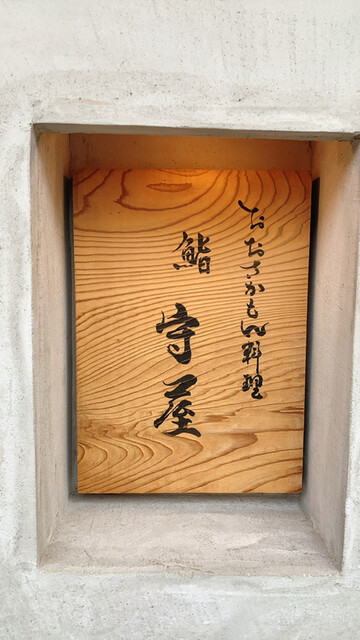 おおさかもん料理
鮨
守屋